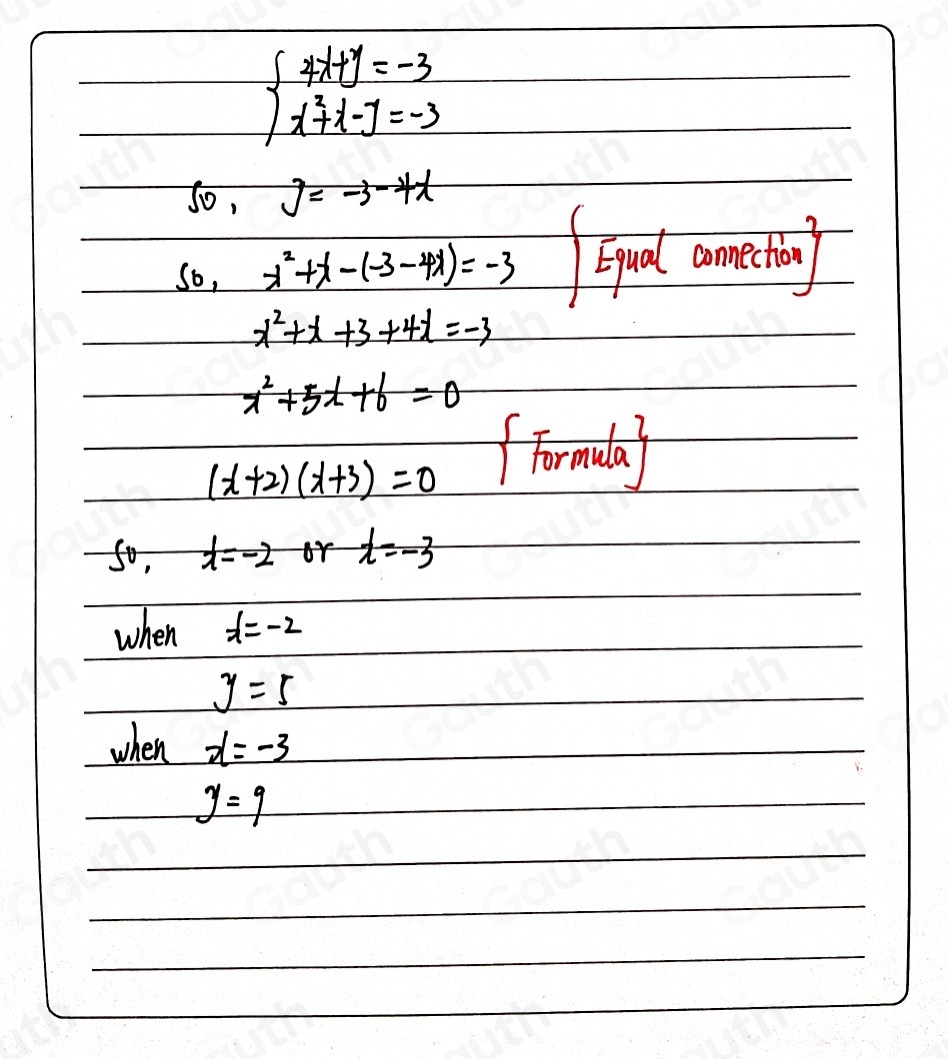 4x+y = -3
x²+x-y = -3
so, y = -3-4x
so, x²+x-(-3-4x) = -3 {Equal connection}
x²+x+3+4x = -3
x²+5x+6 = 0
(x+2)(x+3) = 0 {Formula}
so, x=-2 or x=-3
when x=-2
y = 5
when x=-3
y = 9
Gauth